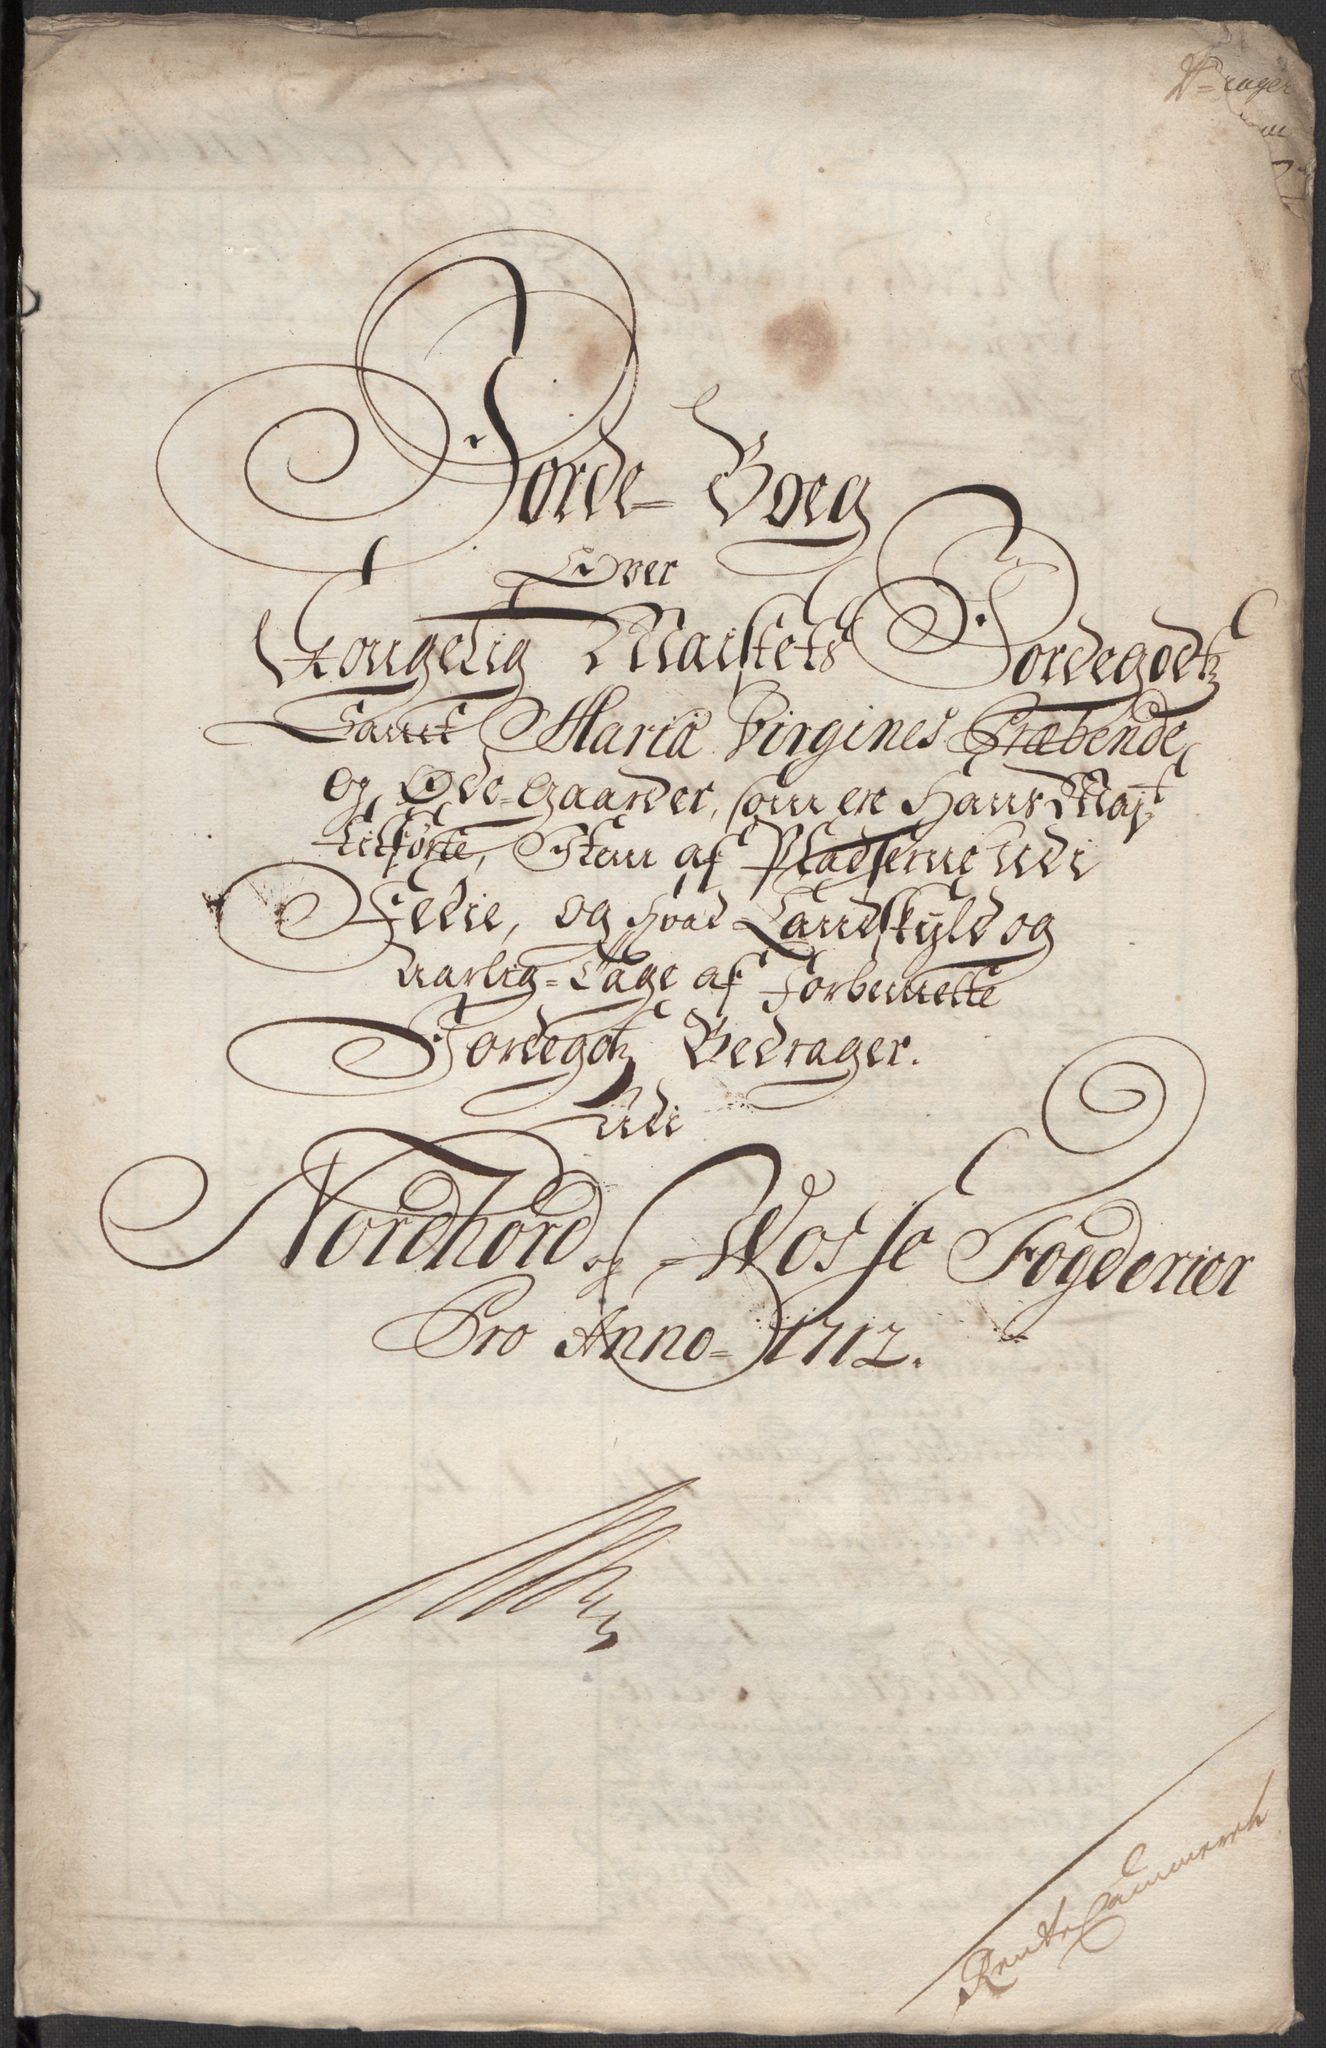 Jorde-Boeg
Over
Kongelig Maistets Jordegodtz
Sanct Mariæ Virgines Præbende
og Øde-Gaarder, som ere Hans Majt
tilførte, Item af Pladserne Udi
Fedie, og hvad Landskyld og
Aarlig-Tage af Forbemelte
Jordegotz Bedrager.
Udi
Nordhord og Wosse Fogderier
Pro Anno-1712.
Rente Cammerh